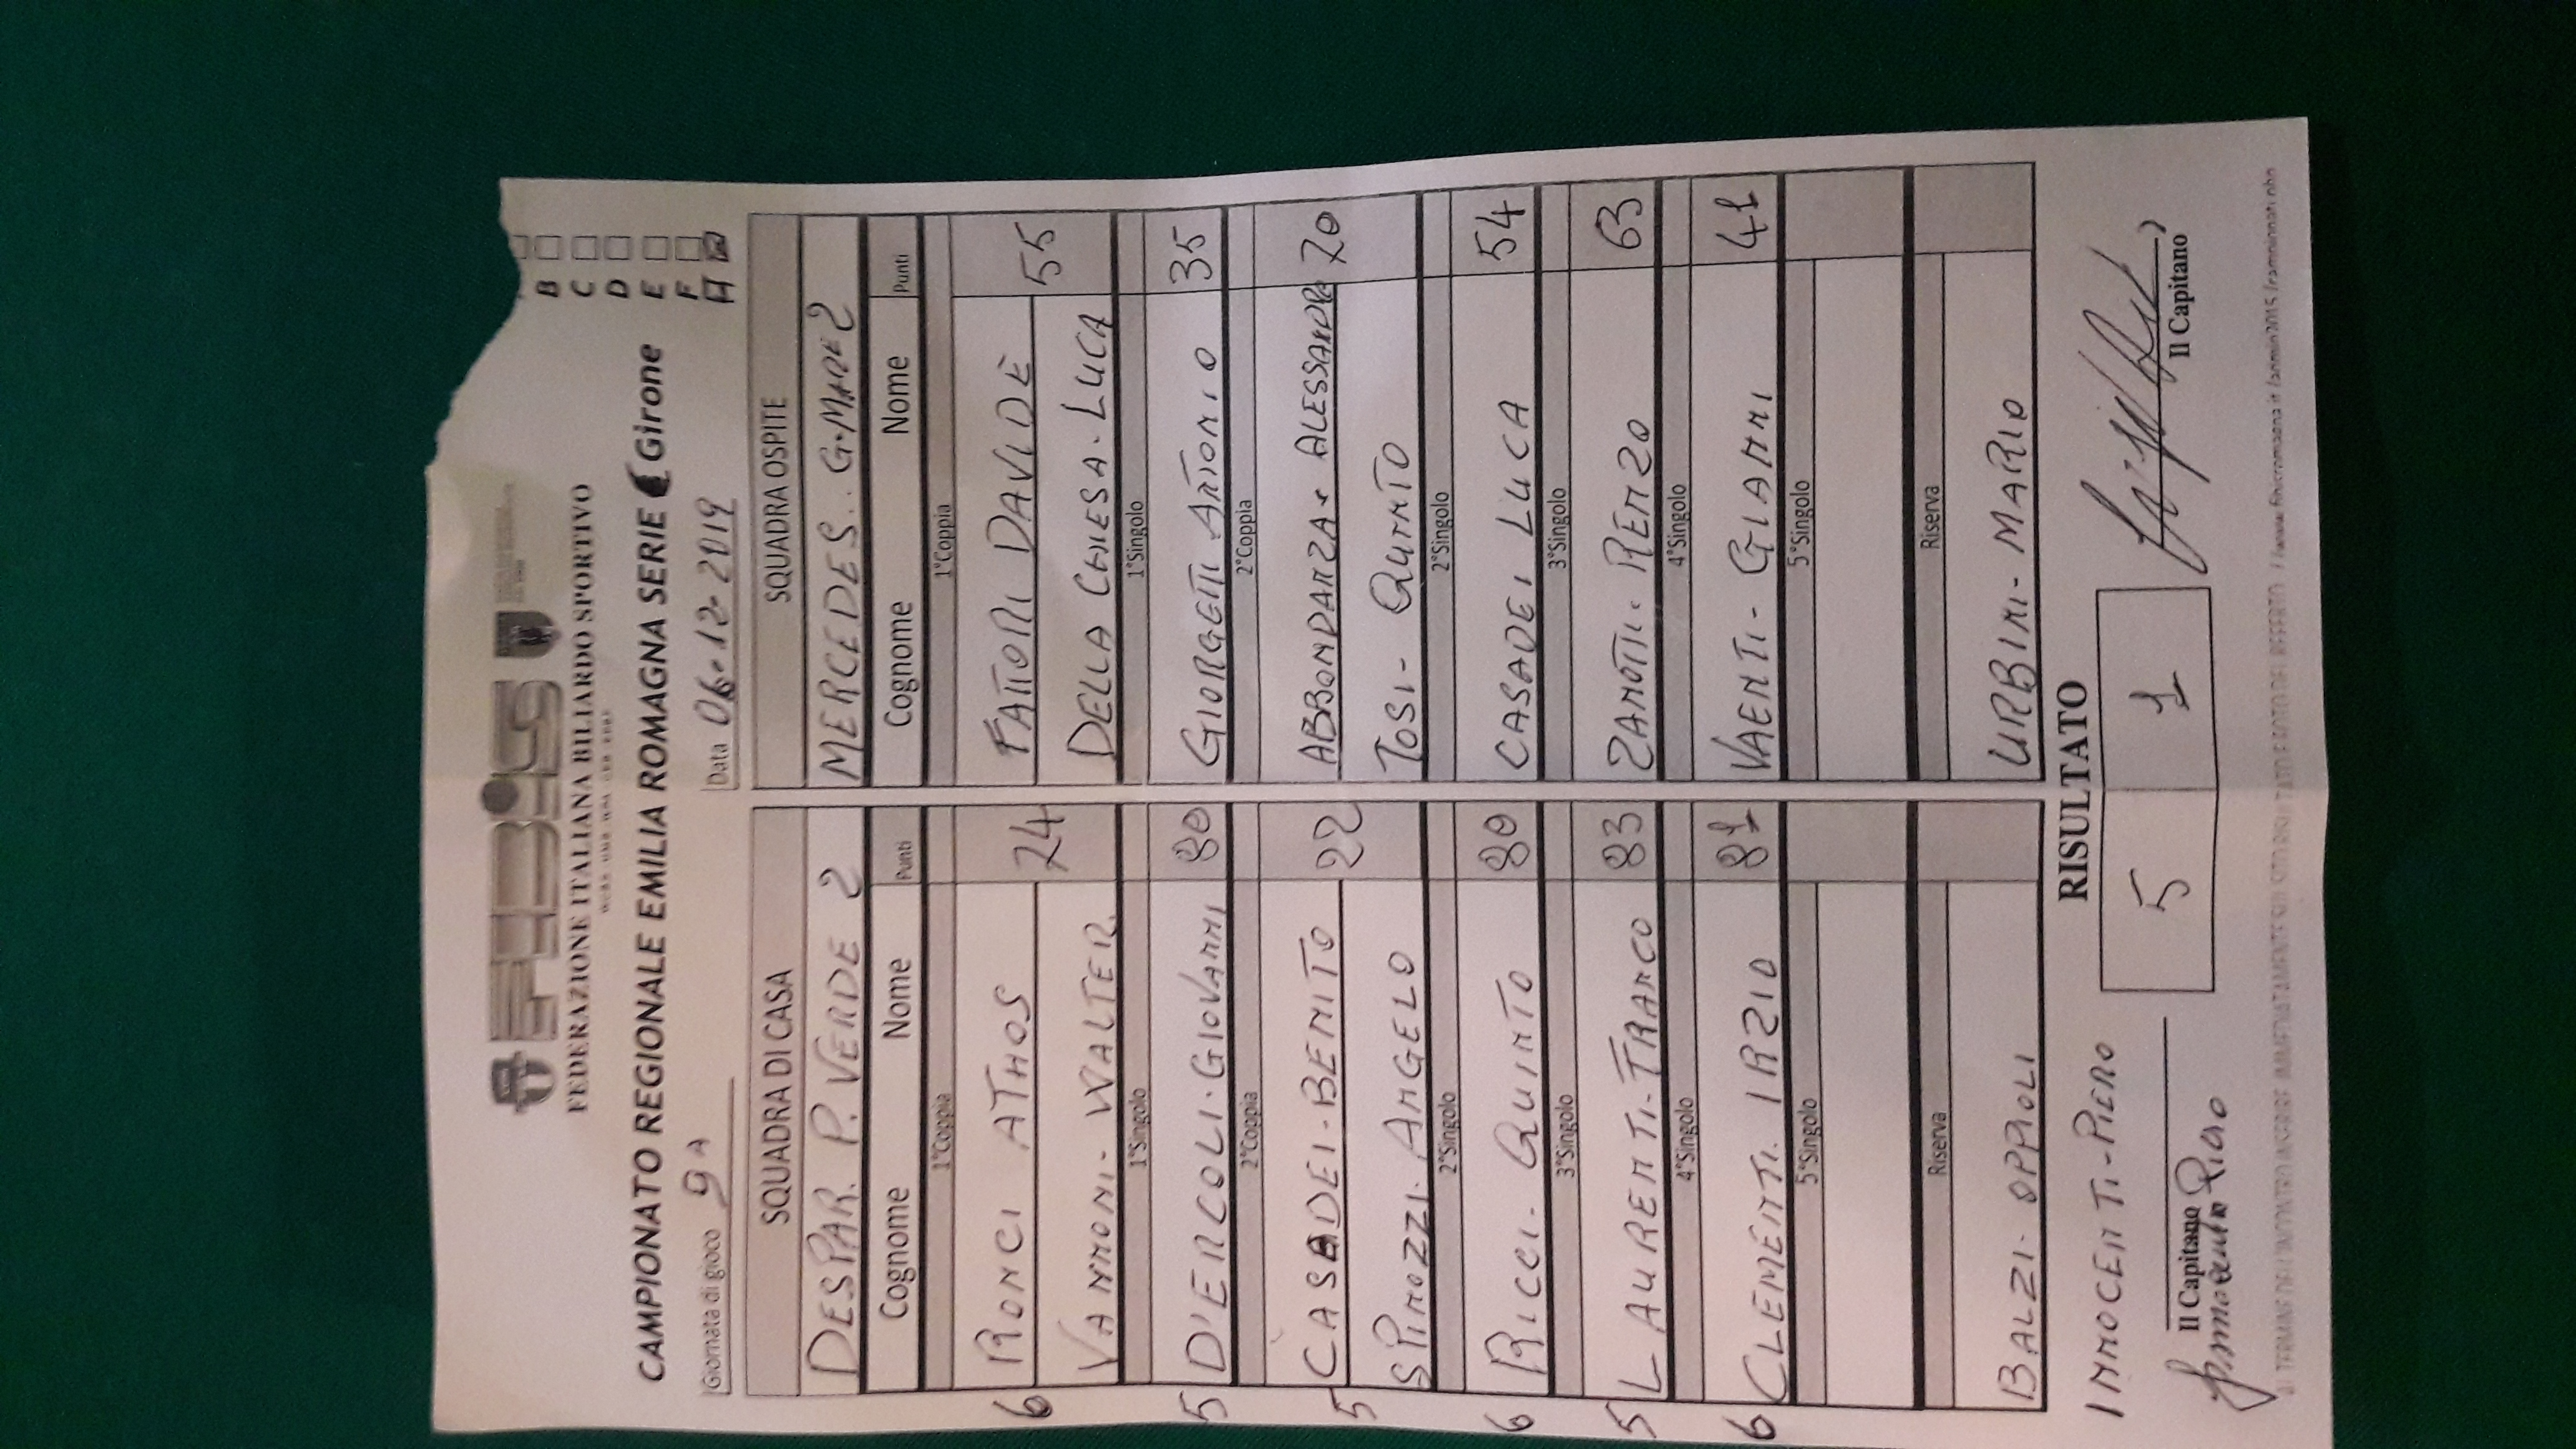 FIBiS
FEDERAZIONE ITALIANA BILIARDO SPORTIVO
CAMPIONATO REGIONALE EMILIA ROMAGNA SERIE C Girone
B
C
D
E
F
H
Giornata di gioco 9A Data 06.12-2019
SQUADRA DI CASA SQUADRA OSPITE
DESPAR. P. VERDE 2 MERCEDES. G.MARE 2
Cognome Nome Punti Cognome Nome Punti
1°Coppia 1°Coppia
6 RONCI ATHOS 74 FATTORI DAVIDE 55
VANNONI- WALTER DELLA CHIESA. LUCA
1°Singolo 1°Singolo
5 D'ERCOLI. GIOVANNI 80 GIORGETTI ANTONIO 35
2°Coppia 2°Coppia
5 CASADEI-BENITO 22 ABBONDANZA. ALESSANDRO 70
SPINOZZI. ANGELO TOSI- QUINTO
2°Singolo 2°Singolo
6 RICCI- QUINTO 80 CASADEI LUCA 54
3°Singolo 3°Singolo
5 LAURENTI-FRANCO 83 ZANOTTI. RENZO 63
4°Singolo 4°Singolo
6 CLEMENTI. IRZIO 81 VAENTI- GIANNI 41
5°Singolo 5°Singolo
Riserva Riserva
BALZI. OPPIOLI URBINI- MARIO
RISULTATO
INNOCENTI-PIERO 5 1
Il Capitano Il Capitano
Innocenti Piero